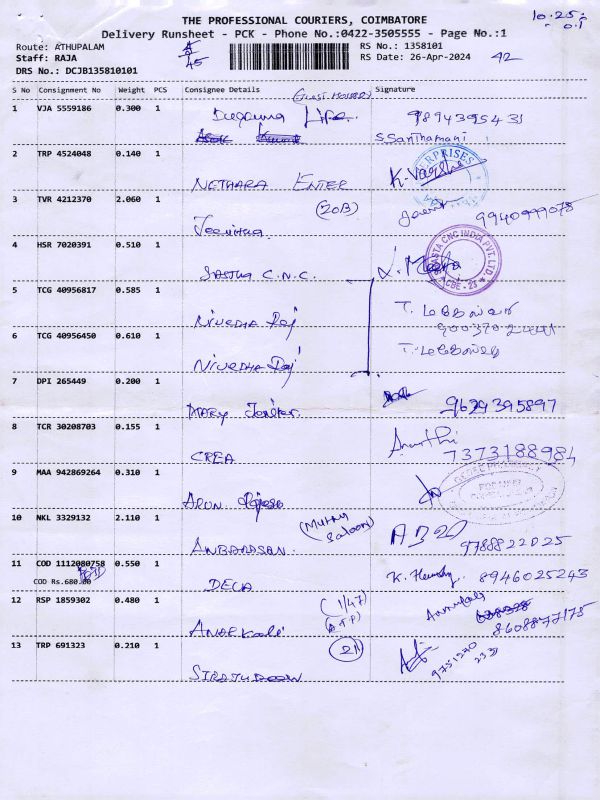 THE PROFESSIONAL COURIERS, COIMBATORE
10.25
Delivery Runsheet - PCK - Phone No.:0422-3505555 - Page No.:1
Route: ATHUPALAM
RS No.: 1358101
Staff: RAJA
45
RS Date: 26-Apr-2024
92
DRS No.: DCJB135810101
S No Consignment No Weight PCS Consignee Details Signature
1 VJA 5559186 0.300 1 Life 9894395431
S. Santhamani
2 TRP 4524048 0.140 1 NETHARA ENTER K. Varsha
ERPRISES
3 TVR 4212370 2.060 1 (20B) 9940999075
4 HSR 7020391 0.510 1 SASTHA C.N.C.
SASTA CNC INDIA PVT. LTD.
CBE - 23
5 TCG 40956817 0.585 1 NIVEDHA Raj
6 TCG 40956450 0.610 1 NIVEDHA Raj
7 DPI 265449 0.200 1 MARY Jenifer 9629395897
8 TCR 30208703 0.155 1 CREA Ananthi 7373188984
9 MAA 942869264 0.310 1 ARUN
10 NKL 3329132 2.110 1 ANBARASAN (Muthu Saloon) 9788822025
11 COD 1112080758 0.550 1 DECA 8946025243
COD Rs.680.00
12 RSP 1859302 0.480 1 ANARKALI (1/47) 8608877175
13 TRP 691323 0.210 1 SIRAJUDEEN 21 9751270